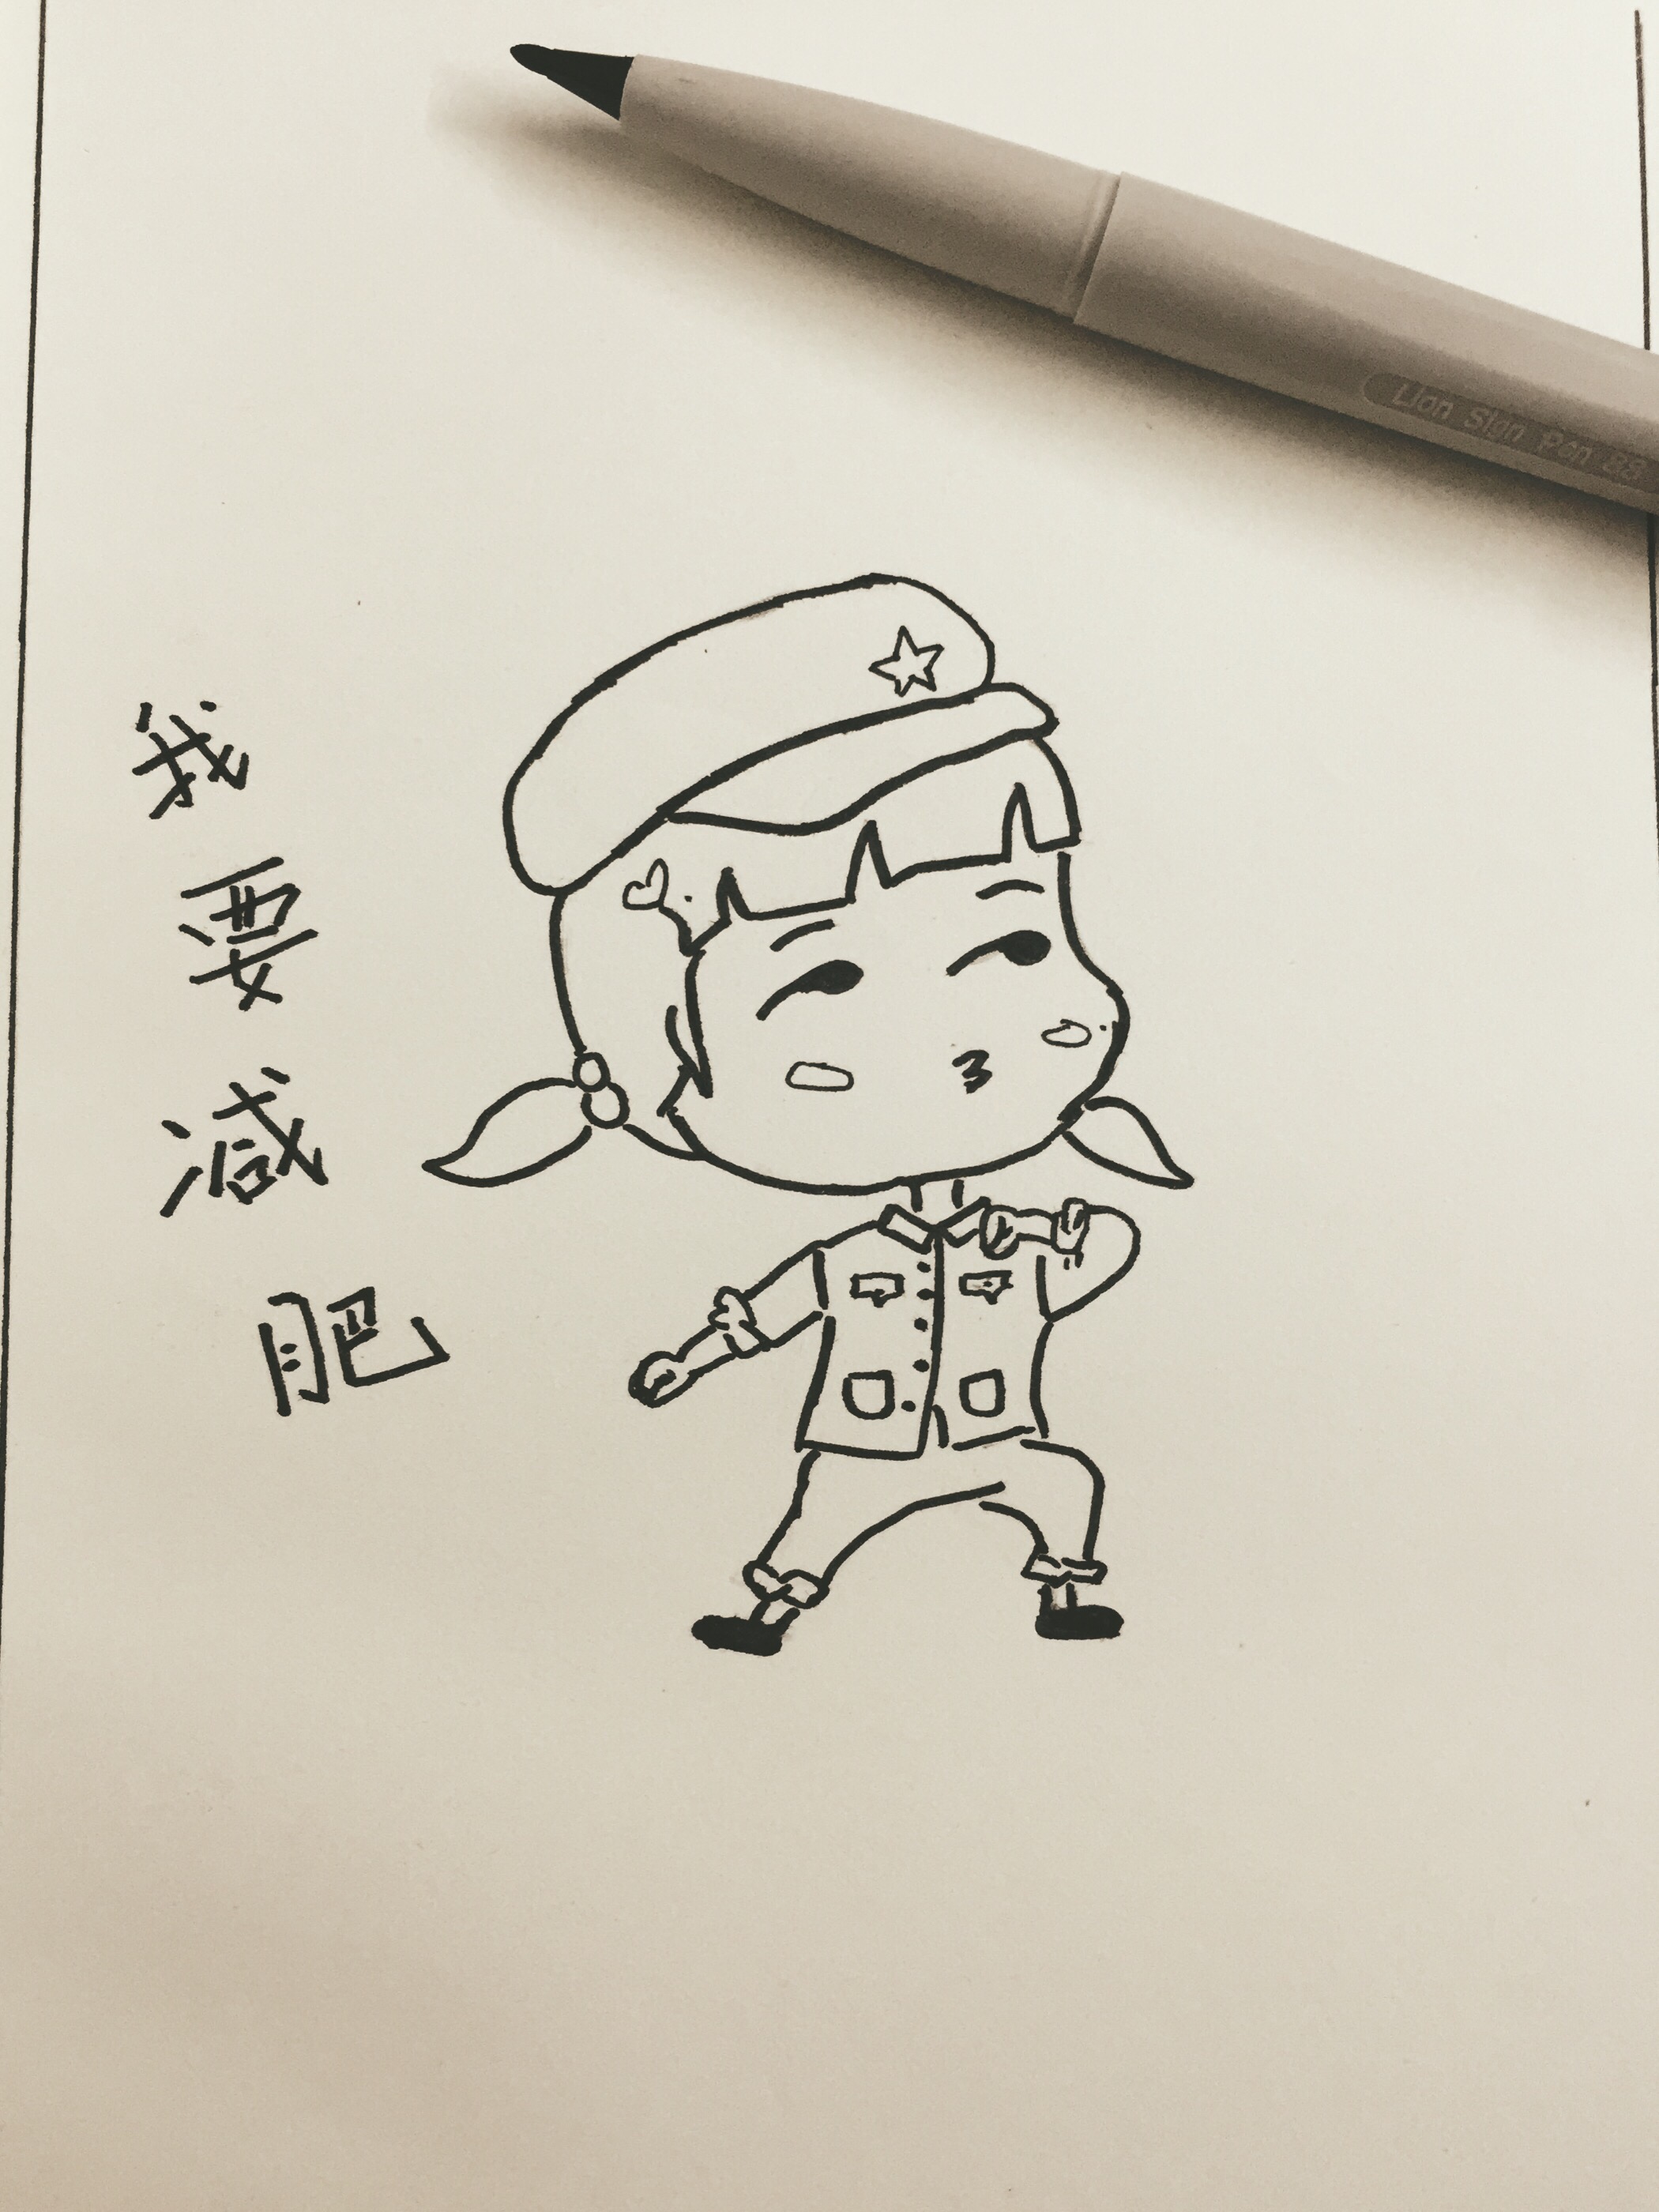 Lion Sign Pen 88
我要减肥